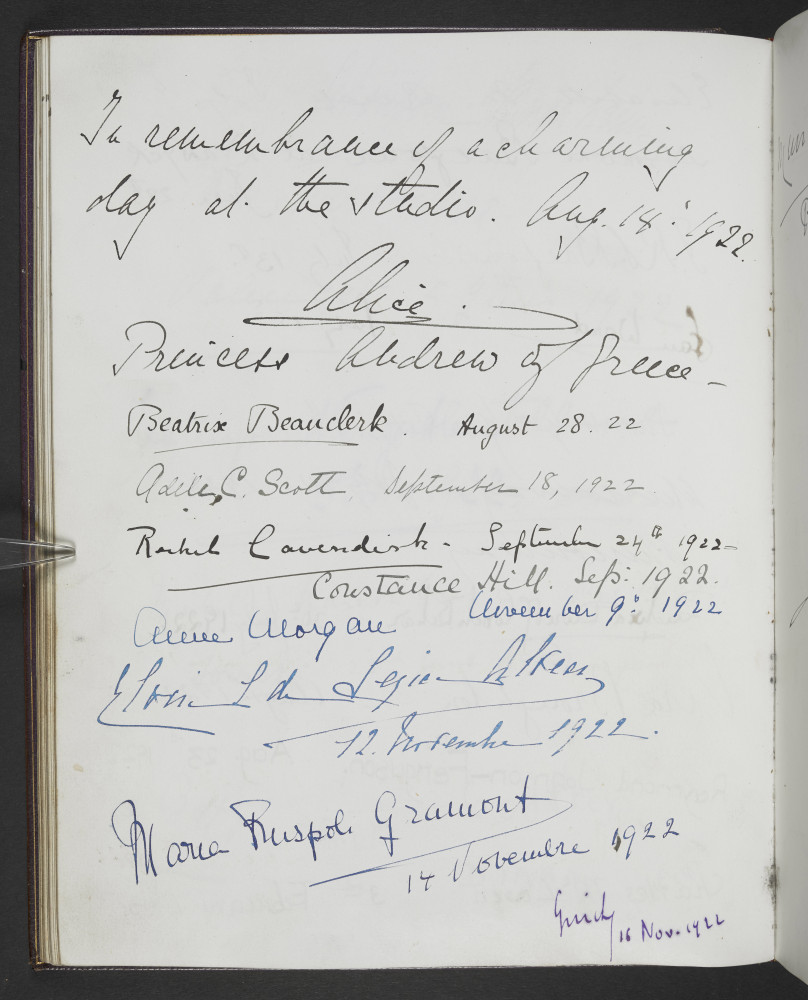 In remembrance of a charming
day at the studio. Aug. 14: 1922.
Alice.
Princess Andrew of Greece -
Beatrix Beauclerk. August 28. 22
Adele C. Scott, September 18, 1922.
Rachel Cavendish - September 24th 1922 -
Constance Hill. Sep: 1922.
Anne Morgan November 9: 1922
L de
12. Novembre 1922.
Maria Ruspoli Gramont
14 Novembre 1922
16 Nov. 1922